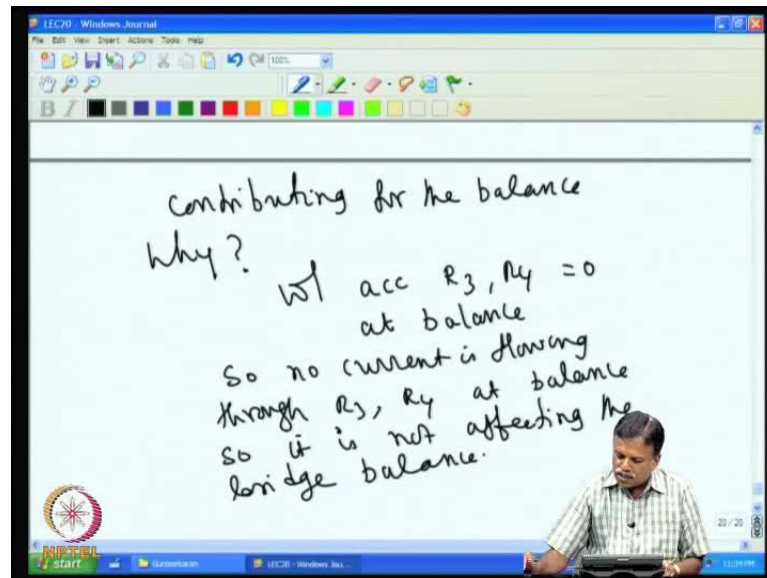 LEC20 - Windows Journal
File Edit View Insert Actions Tools Help
100%
B I
contributing for the balance
Why?
Vol acc R3, R4 = 0
at balance
So no current is flowing
through R3, R4 at balance
so it is not affecting the
bridge balance.
20 / 20
NPTEL
start
LEC20 - Windows Jou...
11:24 PM